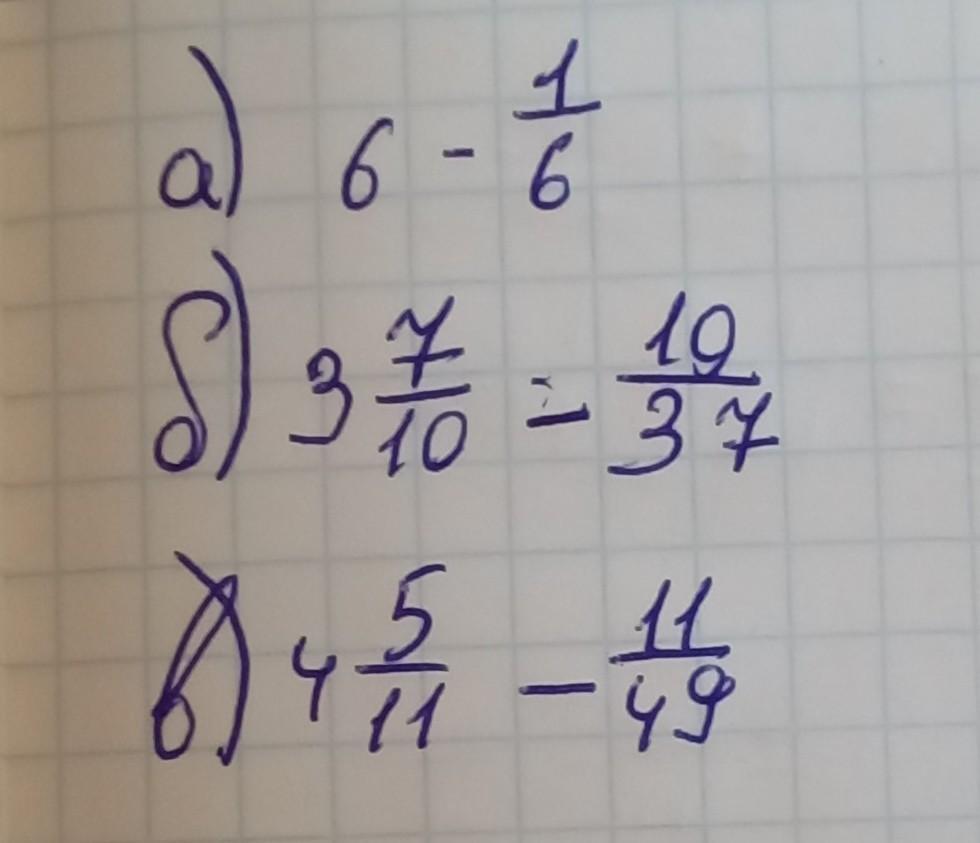 а) 6 - 1/6
б) 3 7/10 - 10/37
в) 4 5/11 - 11/49